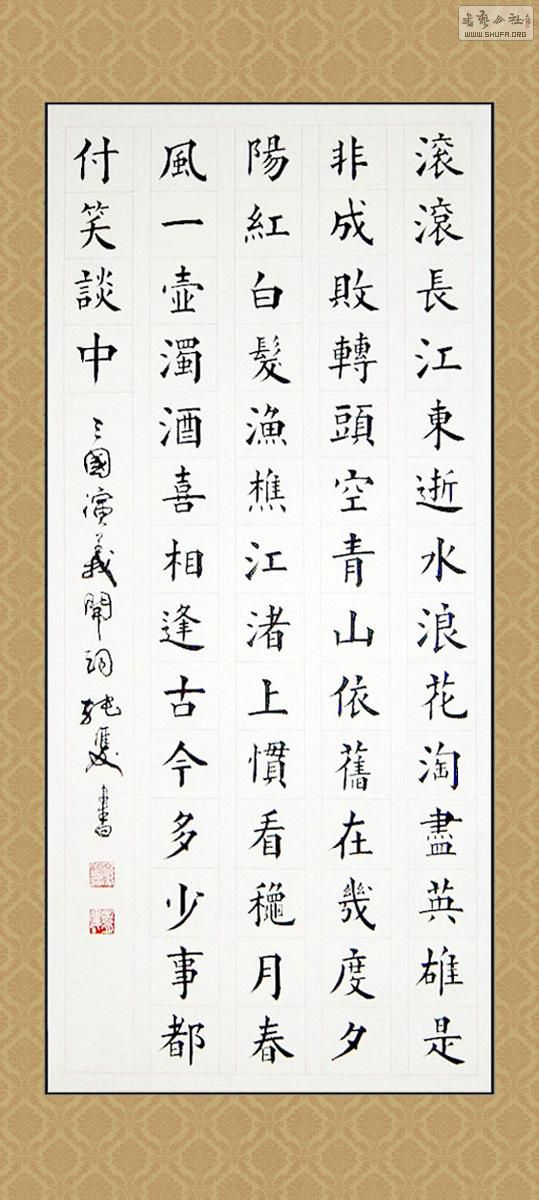 滚滾長江東逝水浪花淘盡英雄是
非成敗轉頭空青山依舊在幾度夕
陽紅白髮漁樵江渚上慣看穐月春
風一壺濁酒喜相逢古今多少事都
付笑談中
三國演義開詞 書
WWW.SHUFA.ORG